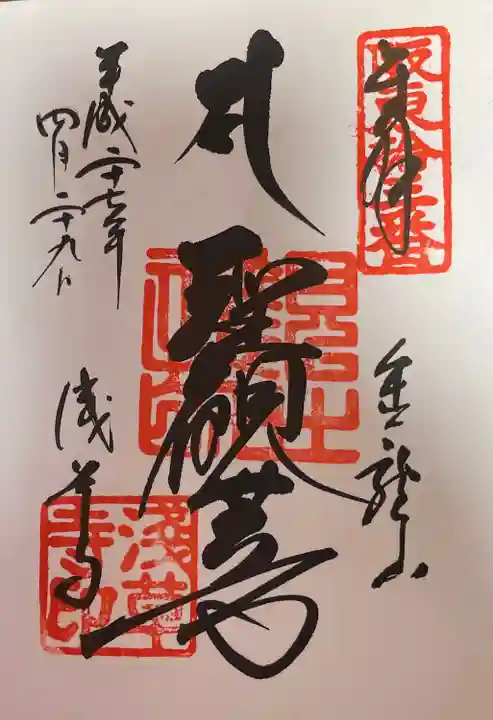 奉拝
坂東拾三番
金龍山
聖観世音
平成二十七年
四月二十九日
浅草寺
淺草寺印